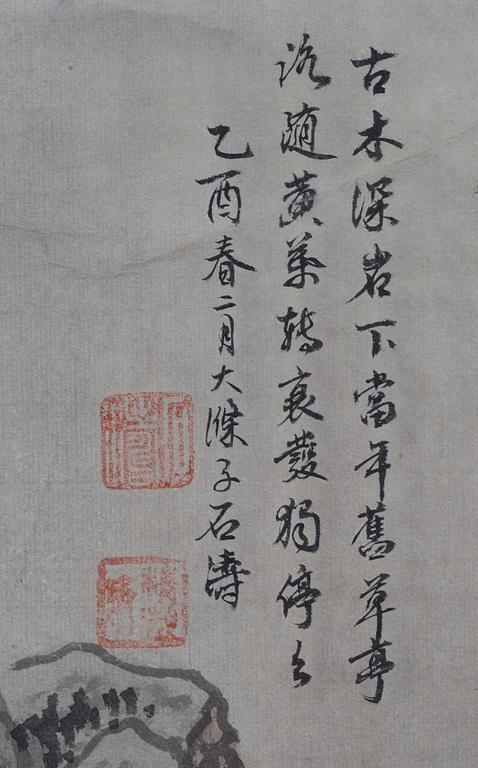 古木深岩下當年舊草亭
路隨黃葉轉衰鬢獨停
乙酉春二月大滌子石濤